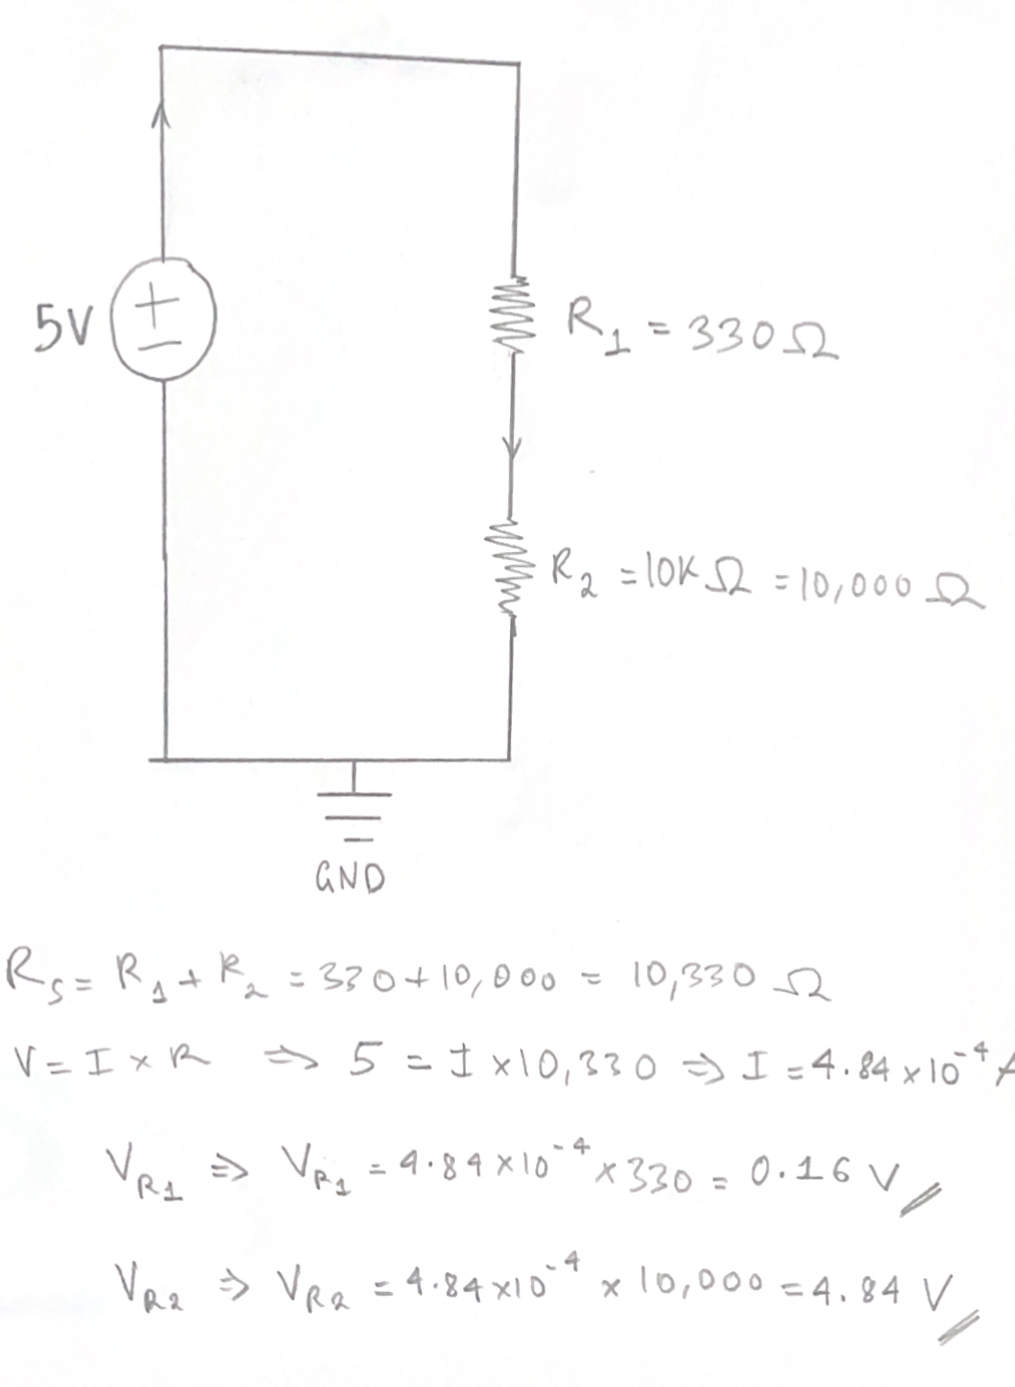 5V
+
−
R₁ = 330Ω
R₂ = 10KΩ = 10,000 Ω
GND
R_S = R₁ + R₂ = 330 + 10,000 = 10,330 Ω
V = I × R ⇒ 5 = I × 10,330 ⇒ I = 4.84 × 10⁻⁴ A
V_R1 ⇒ V_R1 = 4.84 × 10⁻⁴ × 330 = 0.16 V
V_R2 ⇒ V_R2 = 4.84 × 10⁻⁴ × 10,000 = 4.84 V